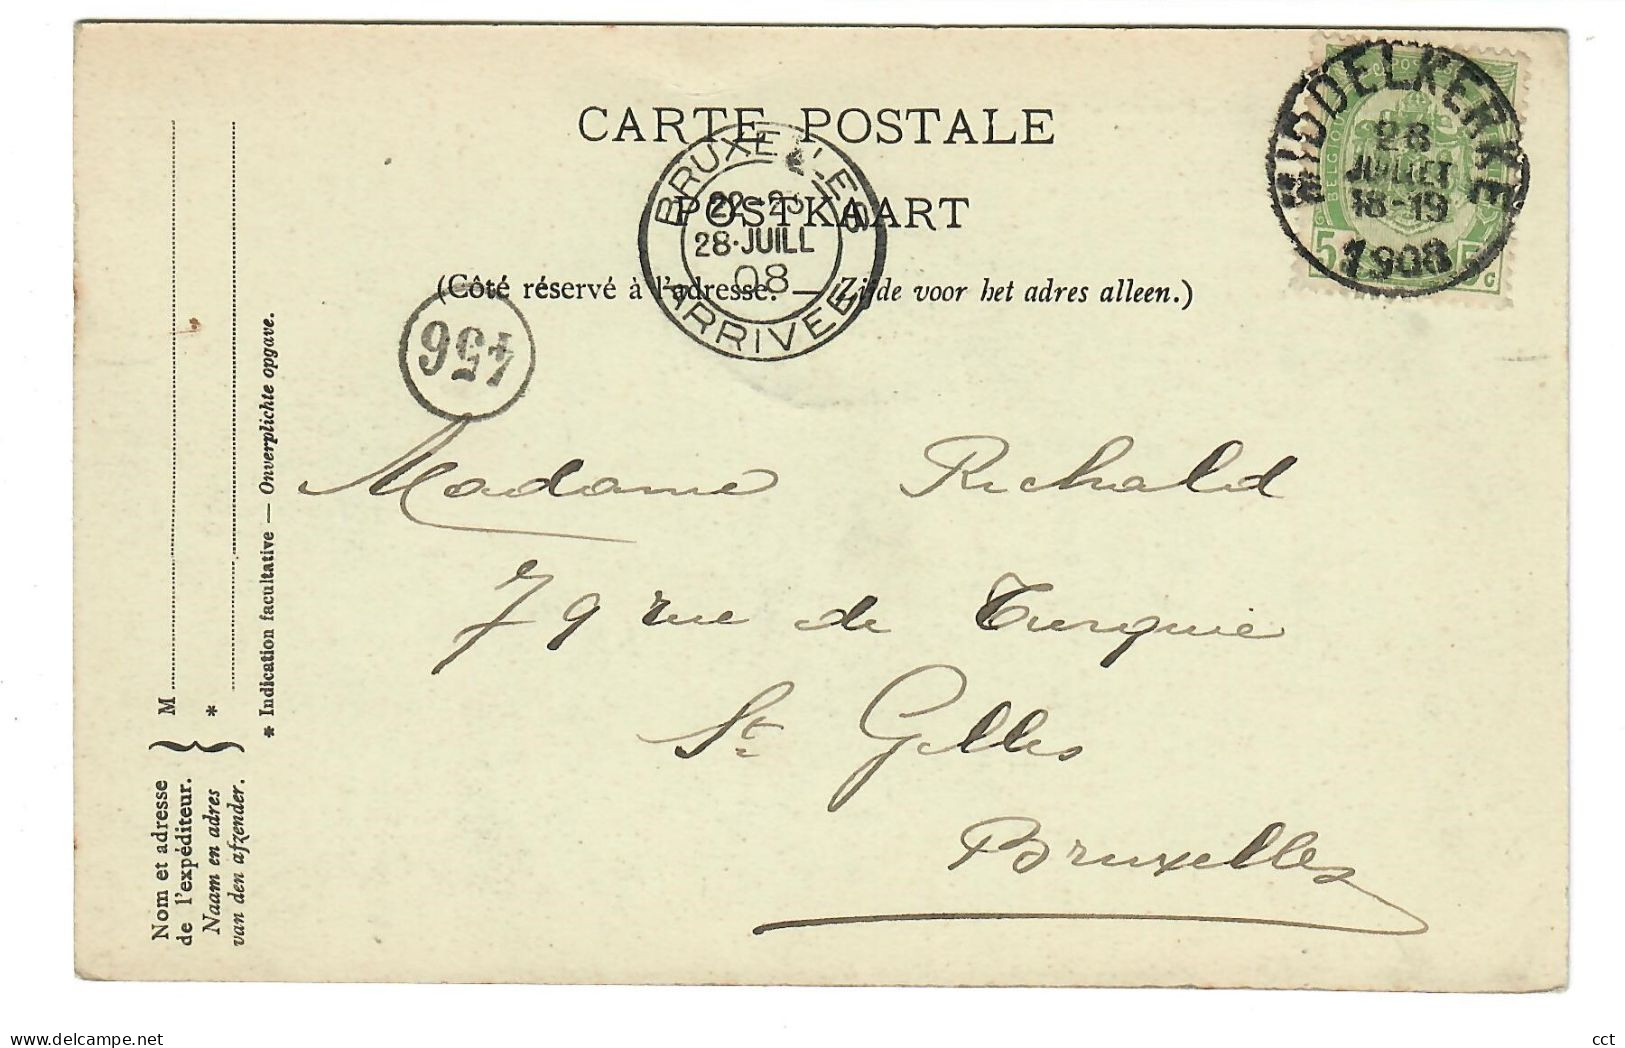 CARTE POSTALE
POSTKAART
(Côté réservé à l'adresse. — Zijde voor het adres alleen.)
MIDDELKERKE
28
JUILLET
18-19
1908
BELGIQUE
5 5 c
BRUXELLES
22-23
28·JUILL
08
ARRIVEE
456
Madame Richald
79 rue de Turquie
St Gilles
Bruxelles
Nom et adresse
de l'expéditeur.
Naam en adres
van den afzender.
M
*
* Indication facultative — Onverplichte opgave.
www.delcampe.net
cct